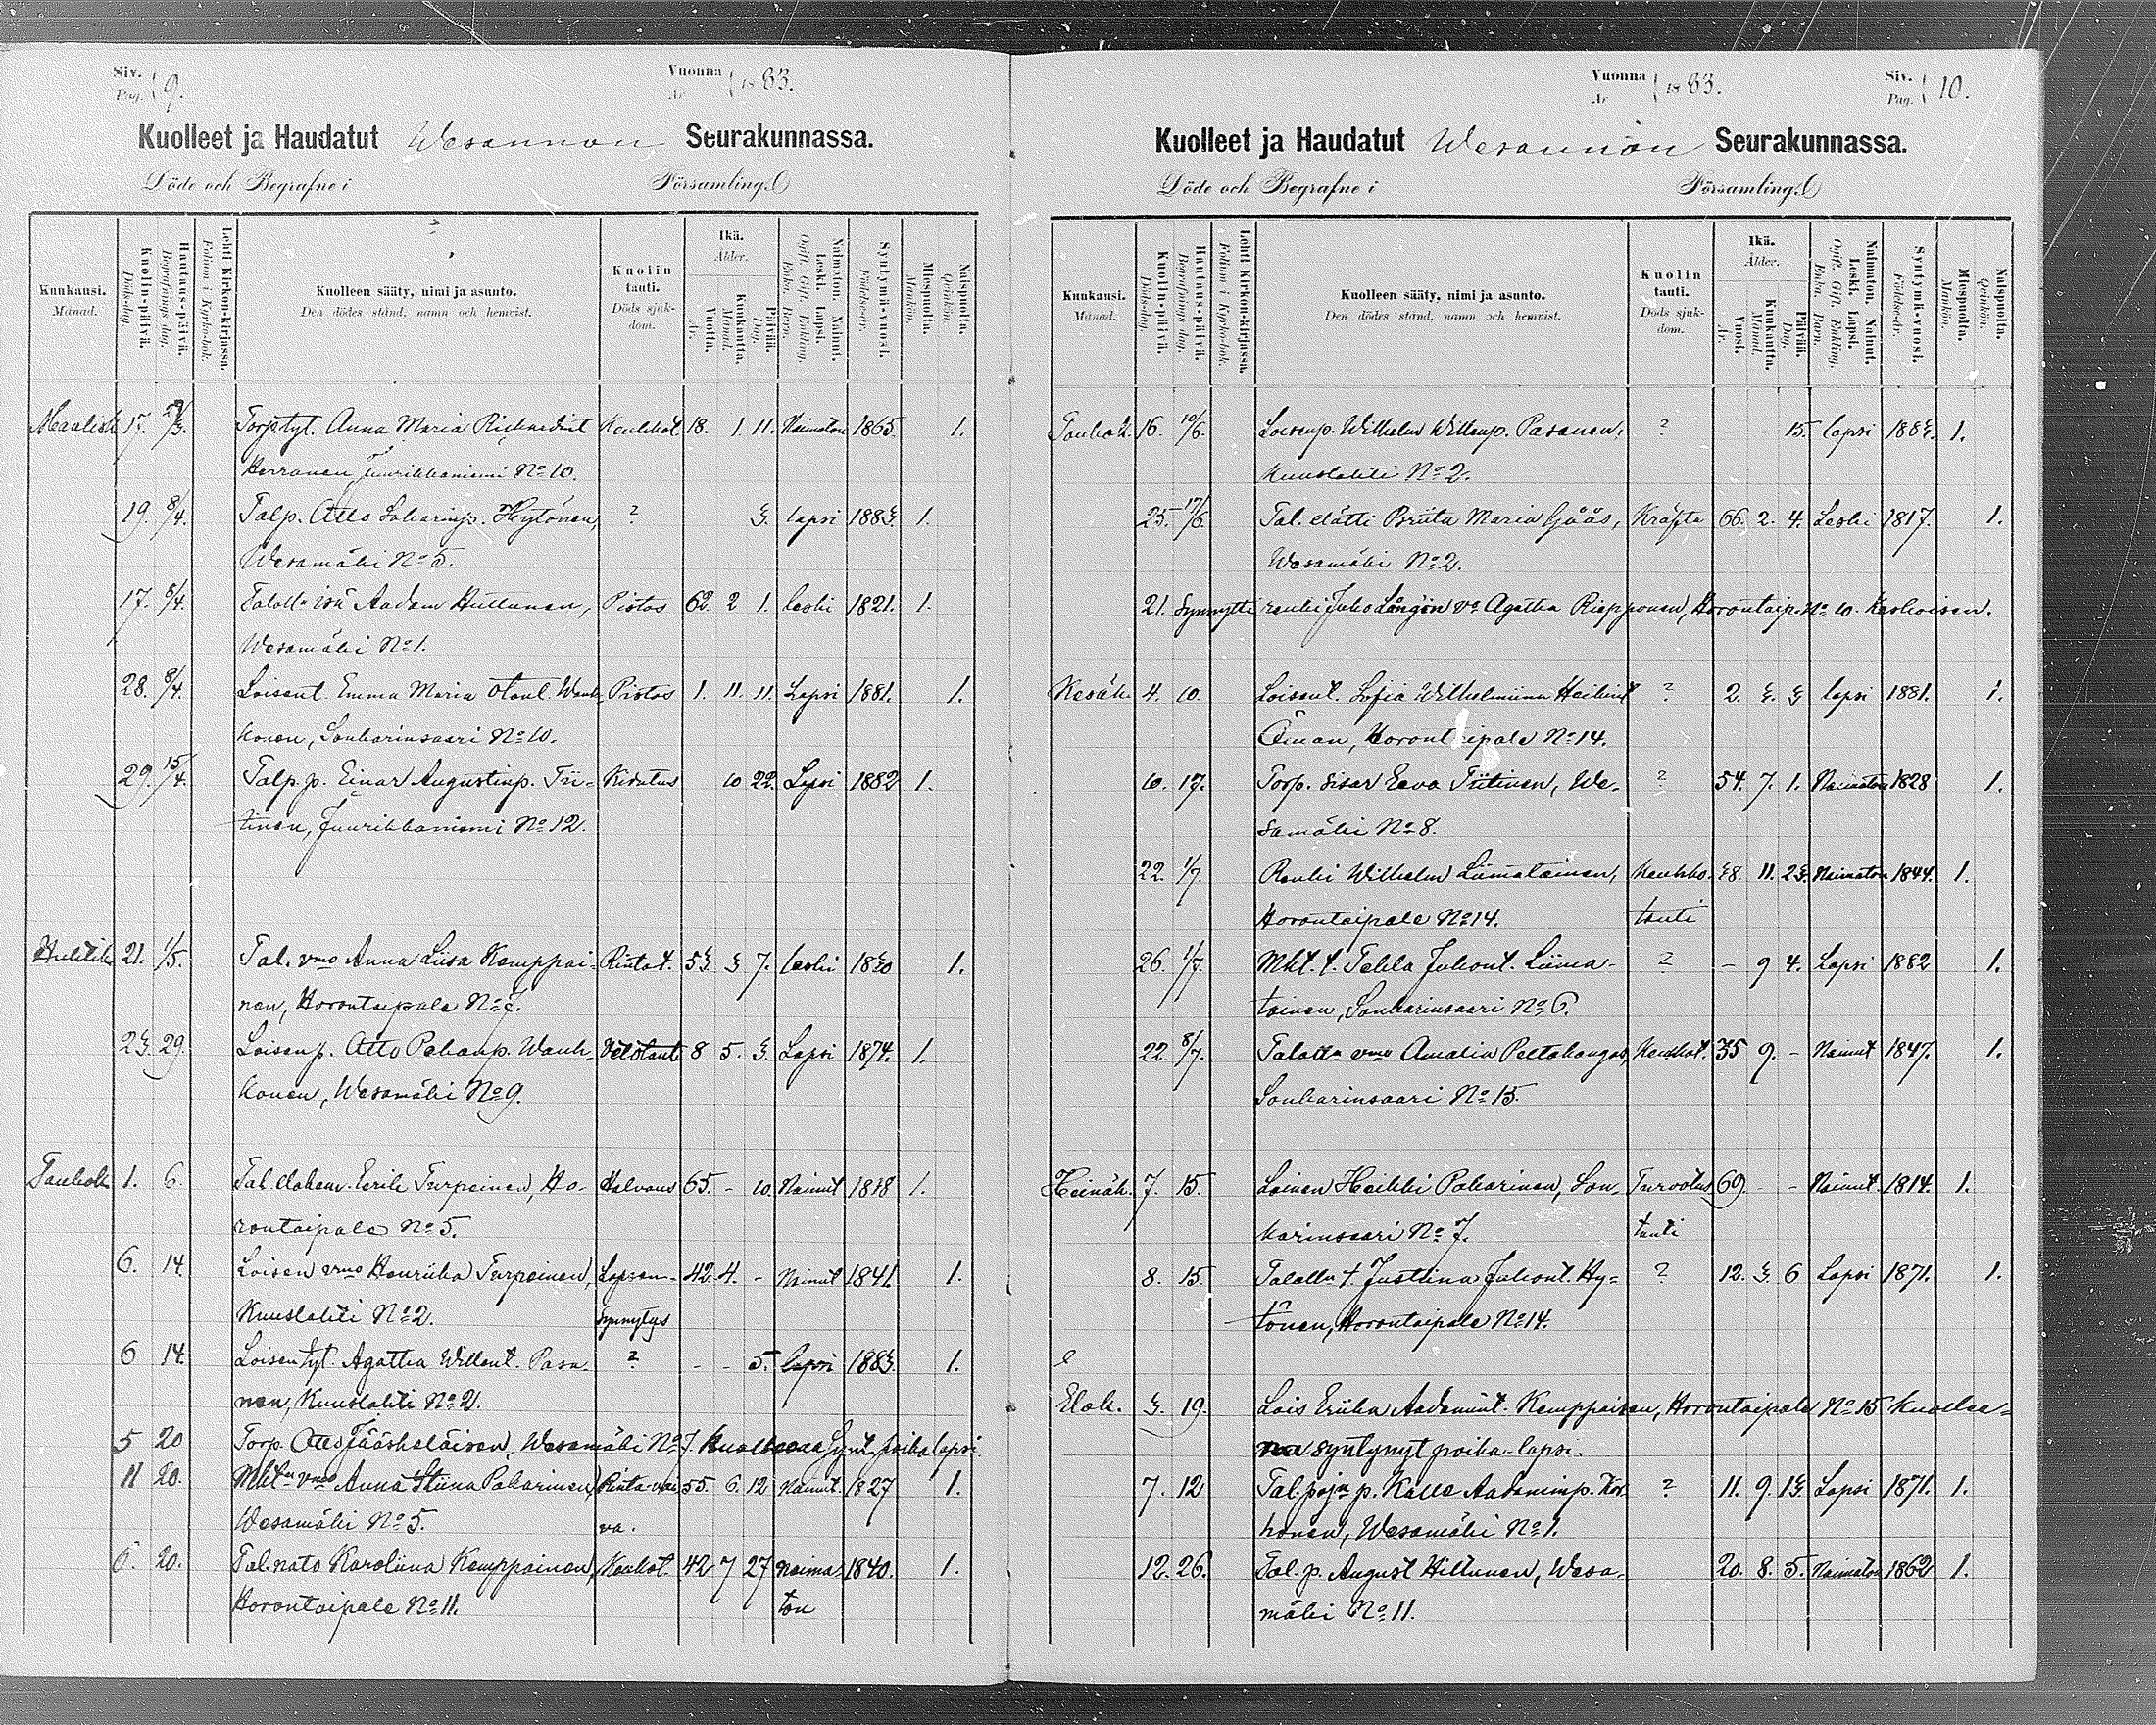 Siv. Pag. 9.
Vuonna År 1883.
Kuolleet ja Haudatut Wesannon Seurakunnassa.
Döde och Begrafne i Församling.
Kuukausi. Månad.
Kuolin-päivä. Dödsdag.
Hautaus-päivä. Begrafnings dag.
Lehti Kirkon-kirjassa. Folium i Kyrkobok.
Kuolleen sääty, nimi ja asunto. Den dödes stånd, namn och hemvist.
Kuolin tauti. Döds sjukdom.
Ikä. Ålder.
Vuotta. År.
Kuukautta. Månad.
Päivää. Dag.
Naimaton. Nainut. Leski. Lapsi. Ogift. Gift. Enkling. Enka. Barn.
Syntymä-vuosi. Födelse-år.
Miespuolta. Mankön.
Naispuolta. Qvinkön.
Maalisk. 15. Torp tyt. Anna Maria Keuhkot 18. 1. 11. Naimaton 1865. 1.
Korranen, Juurikkaniemi No 10.
19. 8/4. Talp. Otto Sakarinp. Hytönen, ? 3. lapsi 1883. 1.
Wesamäki No 5.
17. 8/4. isä Aadam Huttunen, Pistos 62. 2 1. leski 1821. 1.
Wesamäki No 1.
28. 8/4. Loisent. Emma Maria Pistos 1. 11. 11. Lapsi 1881. 1.
konen, Sonkarinsaari No 10.
29. 15/4. Talp. p. Einar Augustinp. Tii- 10 22. Lapsi 1882 1.
tinen, Juurikkaniemi No 12.
Huhtik 21. 1/5. Tal. vmo Anna Liisa Kemppai- Rintat. 53. 3 7. leski 1830 1.
nen, Horontaipale No 7.
23. 29. Loisenp. Otto Wauh- 8 5. 3. Lapsi 1874. 1.
konen, Wesamäki No 9.
Toukok 1. 6. Eerik Turpeinen, Ho- Halvaus 65. - 10. Nainut 1818 1.
rontaipale No 5.
6. 14. Loisen vmo Henriika Turpeinen, Lapsen- 42. 4. - Nainut 1841 1.
Kuuslahti No 2. synnytys
6 14. Loisen tyt. Agatha Willent. Pasa- ? - - 5. lapsi 1883. 1.
nen, Kuuslahti No 2.
5 20 Torp. Otto Jääskeläisen, Wesamäki No 7. Kuolleena synt. poika lapsi
11 20. vmo Anna Stiina Pakarinen, Rinta-vai 55. 6. 12 Nainut. 1827 1.
Wesamäki No 5. va.
6. 20. Tal. nato Karoliina Kemppainen, Keuhkot. 42 7 27 naima- 1840. 1.
Horontaipale No 11. ton
Vuonna År 1883.
Siv. Pag. 10.
Kuolleet ja Haudatut Wesannon Seurakunnassa.
Döde och Begrafne i Församling.
Kuukausi. Månad.
Kuolin-päivä. Dödsdag.
Hautaus-päivä. Begrafnings dag.
Lehti Kirkon-kirjassa. Folium i Kyrkobok.
Kuolleen sääty, nimi ja asunto. Den dödes stånd, namn och hemvist.
Kuolin tauti. Döds sjukdom.
Ikä. Ålder.
Vuosi. År.
Kuukautta. Månad.
Päivää. Dag.
Naimaton. Nainut. Leski. Lapsi. Ogift. Gift. Enkling. Enka. Barn.
Syntymä-vuosi. Födelse-år.
Miespuolta. Mankön.
Naispuolta. Qvinkön.
Toukok. 16. 10/6. Loisenp. Wilhelm Willenp. Pasanen, ? 15. lapsi 1883. 1.
Kuuslahti No 2.
25. 17/6. Tal. elätti Briita Maria Gåås, Kräfta 66. 2. 4. Leski 1817. 1.
Wesamäki No 2.
21. Synnytti renki Juho vo Agatha Riepponen, Horontaip. No 10. Keskoisen.
Kesäk. 4. 10. Loisent. Sofia Wilhelmiina Heikint ? 2. 3. 3 lapsi 1881. 1.
Öman, Horontaipale No 14.
10. 17. Torp. sisar Eeva Tiitinen, We- ? 54. 7. 1. Naimaton 1828 1.
samäki No 8.
22. 1/7. Renki Wilhelm Liimatainen, Keuhko. 38. 11. 23. Naimaton 1844. 1.
Horontaipale No 14. tauti
26. 1/7. Mkt. t. Tekla Juhont. Liima- ? - 9 4. Lapsi 1882 1.
tainen, Sonkarinsaari No 6.
22. 8/7. vmo Amalia Peltokangas, Keuhkot. 35 9. - Nainut 1847. 1.
Sonkarinsaari No 15.
Heinäk. 7. 15. Loinen Heikki Pakarinen, Son- Turvotus 69. - Nainut. 1814. 1.
karinsaari No 7. tauti
8. 15. t. Justiina Juhont. Hy- ? 12. 3. 6 Lapsi 1871. 1.
tönen, Horontaipale No 14.
Elok. 3. 19. Lois Eriika Aadamint. Kemppaisen, Horontaipale No 15 Kuollee-
na syntynyt poika-lapsi.
7. 12 Tal. pojn p. Kalle Aadaminp. Kor- ? 11. 9. 13. Lapsi 1871. 1.
honen, Wesamäki No 1.
12. 26. Tal. p. August Hiltunen, Wesa- 20. 8. 5. Naimaton 1862 1.
mäki No 11.